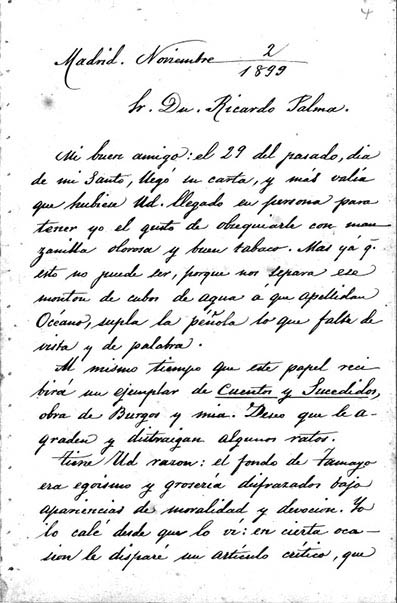 4
Madrid. Noviembre 2/1899
Sr. Dn. Ricardo Palma.
Mi buen amigo: el 29 del pasado, dia
de mi Santo, llegó su carta, y más valia
que hubiera Ud. llegado en persona para
tener yo el gusto de obsequiarle con man-
zanilla olorosa y buen tabaco. Mas yá q.
esto no puede ser, porque nos separa ese
monton de cubos de agua á que apellidan
Océano, supla la péñola lo que falte de
vista y de palabra.
Al mismo tiempo que este papel reci
birá un ejemplar de Cuentos y Sucedidos,
obra de Burgos y mia. Deseo que le a-
graden y distraigan algunos ratos.
Tiene Ud razon: el fondo de Tamayo
era egoismo y grosería disfrazados bajo
apariencias de moralidad y devocion. Yo
lo calé desde que lo ví: en cierta oca-
sion le disparé un artículo crítico, que